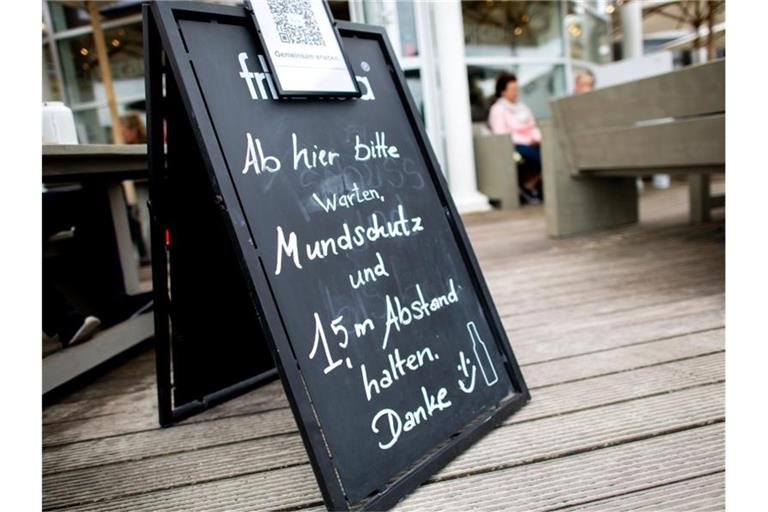 Gemeinsam
Ab hier bitte
Warten,
Mundschutz
und
1,5 m Abstand
halten.
Danke